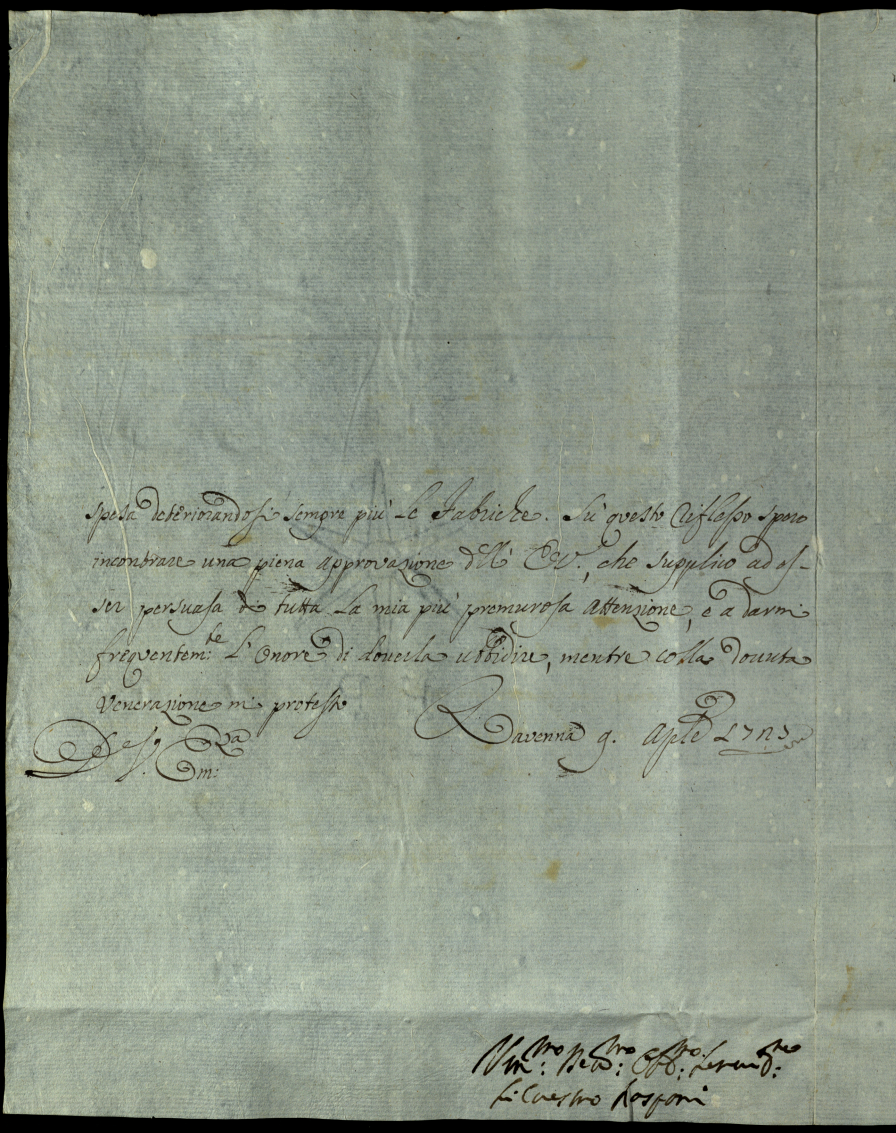 spesa deteriorandosi sempre più le Fabriche. Sù questo riflesso spero
incontrare una piena approvazione dell' E. V., che supplico ad es-
ser persuasa di tutta la mia più premurosa attenzione, e a darmi
frequentem:te l'onore di doverla ubbidire, mentre colla dovuta
venerazione mi protesto
Ravenna 9. Aple
Um:mo Dev:mo Obb:mo Servid:re
Silvestro Rasponi